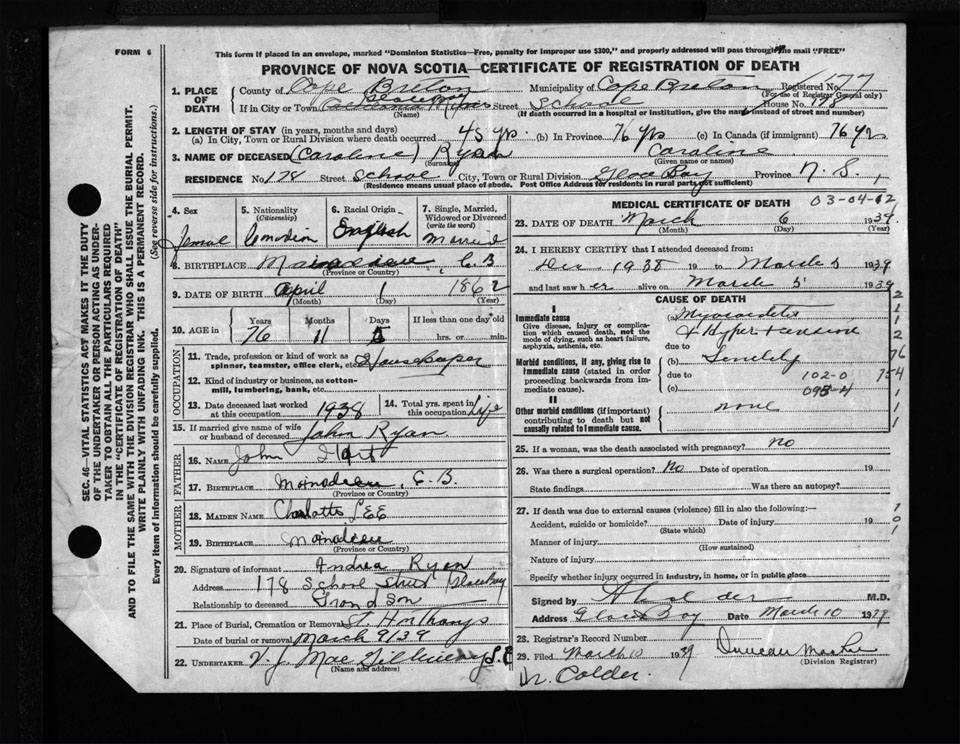 FORM 6
This form if placed in an envelope, marked "Dominion Statistics—Free, penalty for improper use $300," and properly addressed will pass through the mail "FREE"
PROVINCE OF NOVA SCOTIA—CERTIFICATE OF REGISTRATION OF DEATH
1. PLACE OF DEATH County of Cape Breton Municipality of Cape Breton Registered No. 177
(For use of Registrar General only)
If in City or Town Street School House No. 178
(Name) (If death occurred in a hospital or institution, give the name instead of street and number)
2. LENGTH OF STAY (in years, months and days)
(a) In City, Town or Rural Division where death occurred 45 yrs. (b) In Province 76 yrs (c) In Canada (if immigrant) 76 yrs
3. NAME OF DECEASED (Caroline) Ryan Caroline
(Surname) (Given name or names)
RESIDENCE No. 178 Street School City, Town or Rural Division Glace Bay Province N.S.
(Residence means usual place of abode. Post Office Address for residents in rural parts not sufficient)
4. Sex Female
5. Nationality (Citizenship) Canadian
6. Racial Origin English
7. Single, Married, Widowed or Divorced (write the word) Married
8. BIRTHPLACE C.B
(Province or Country)
9. DATE OF BIRTH April 1 1862
(Month) (Day) (Year)
10. AGE in Years Months Days If less than one day old
76 11 5 hrs. or min.
OCCUPATION
11. Trade, profession or kind of work as spinner, teamster, office clerk, etc. Housekeeper
12. Kind of industry or business, as cotton-mill, lumbering, bank, etc.
13. Date deceased last worked at this occupation 1938
14. Total yrs. spent in this occupation Life
15. If married give name of wife or husband of deceased John Ryan
FATHER
16. Name John Hart
17. BIRTHPLACE C.B.
(Province or Country)
MOTHER
18. MAIDEN NAME Charlotte LEE
19. BIRTHPLACE
(Province or Country)
20. Signature of informant Andrea Ryan
Address 178 School Street Glace Bay
Relationship to deceased Grandson
21. Place of Burial, Cremation or Removal St. Anthonys
Date of burial or removal March 9/39
22. UNDERTAKER V. J.
(Name and address)
MEDICAL CERTIFICATE OF DEATH
03-04-02
23. DATE OF DEATH March 6 1939
(Month) (Day) (Year)
24. I HEREBY CERTIFY that I attended deceased from:
Dec 1938 19 to March 5 1939
and last saw her alive on March 5 1939
CAUSE OF DEATH
I
Immediate cause
Give disease, injury or complication which caused death, not the mode of dying, such as heart failure, asphyxia, asthenia, etc.
(a) Myocarditis
& Hypertension
due to
Morbid conditions, if any, giving rise to immediate cause (stated in order proceeding backwards from immediate cause).
(b) Senility
due to 102-0
(c)
II
Other morbid conditions (if important) contributing to death but not causally related to immediate cause.
none
25. If a woman, was the death associated with pregnancy? No
26. Was there a surgical operation? No Date of operation 19
State findings Was there an autopsy?
27. If death was due to external causes (violence) fill in also the following:—
Accident, suicide or homicide? Date of injury 19
(State which)
Manner of injury
(How sustained)
Nature of injury
Specify whether injury occurred in industry, in home, or in public place
Signed by M.D.
Address Glace Bay Date March 10 1939
28. Registrar's Record Number
29. Filed March 10 1939 Duncan
(Division Registrar)
Dr. Calder.
SEC. 46—VITAL STATISTICS ACT MAKES IT THE DUTY
OF THE UNDERTAKER OR PERSON ACTING AS UNDER-
TAKER TO OBTAIN ALL THE PARTICULARS REQUIRED
IN THE "CERTIFICATE OF REGISTRATION OF DEATH"
AND TO FILE THE SAME WITH THE DIVISION REGISTRAR WHO SHALL ISSUE THE BURIAL PERMIT.
WRITE PLAINLY WITH UNFADING INK. THIS IS A PERMANENT RECORD.
Every item of information should be carefully supplied. (See reverse side for instructions.)